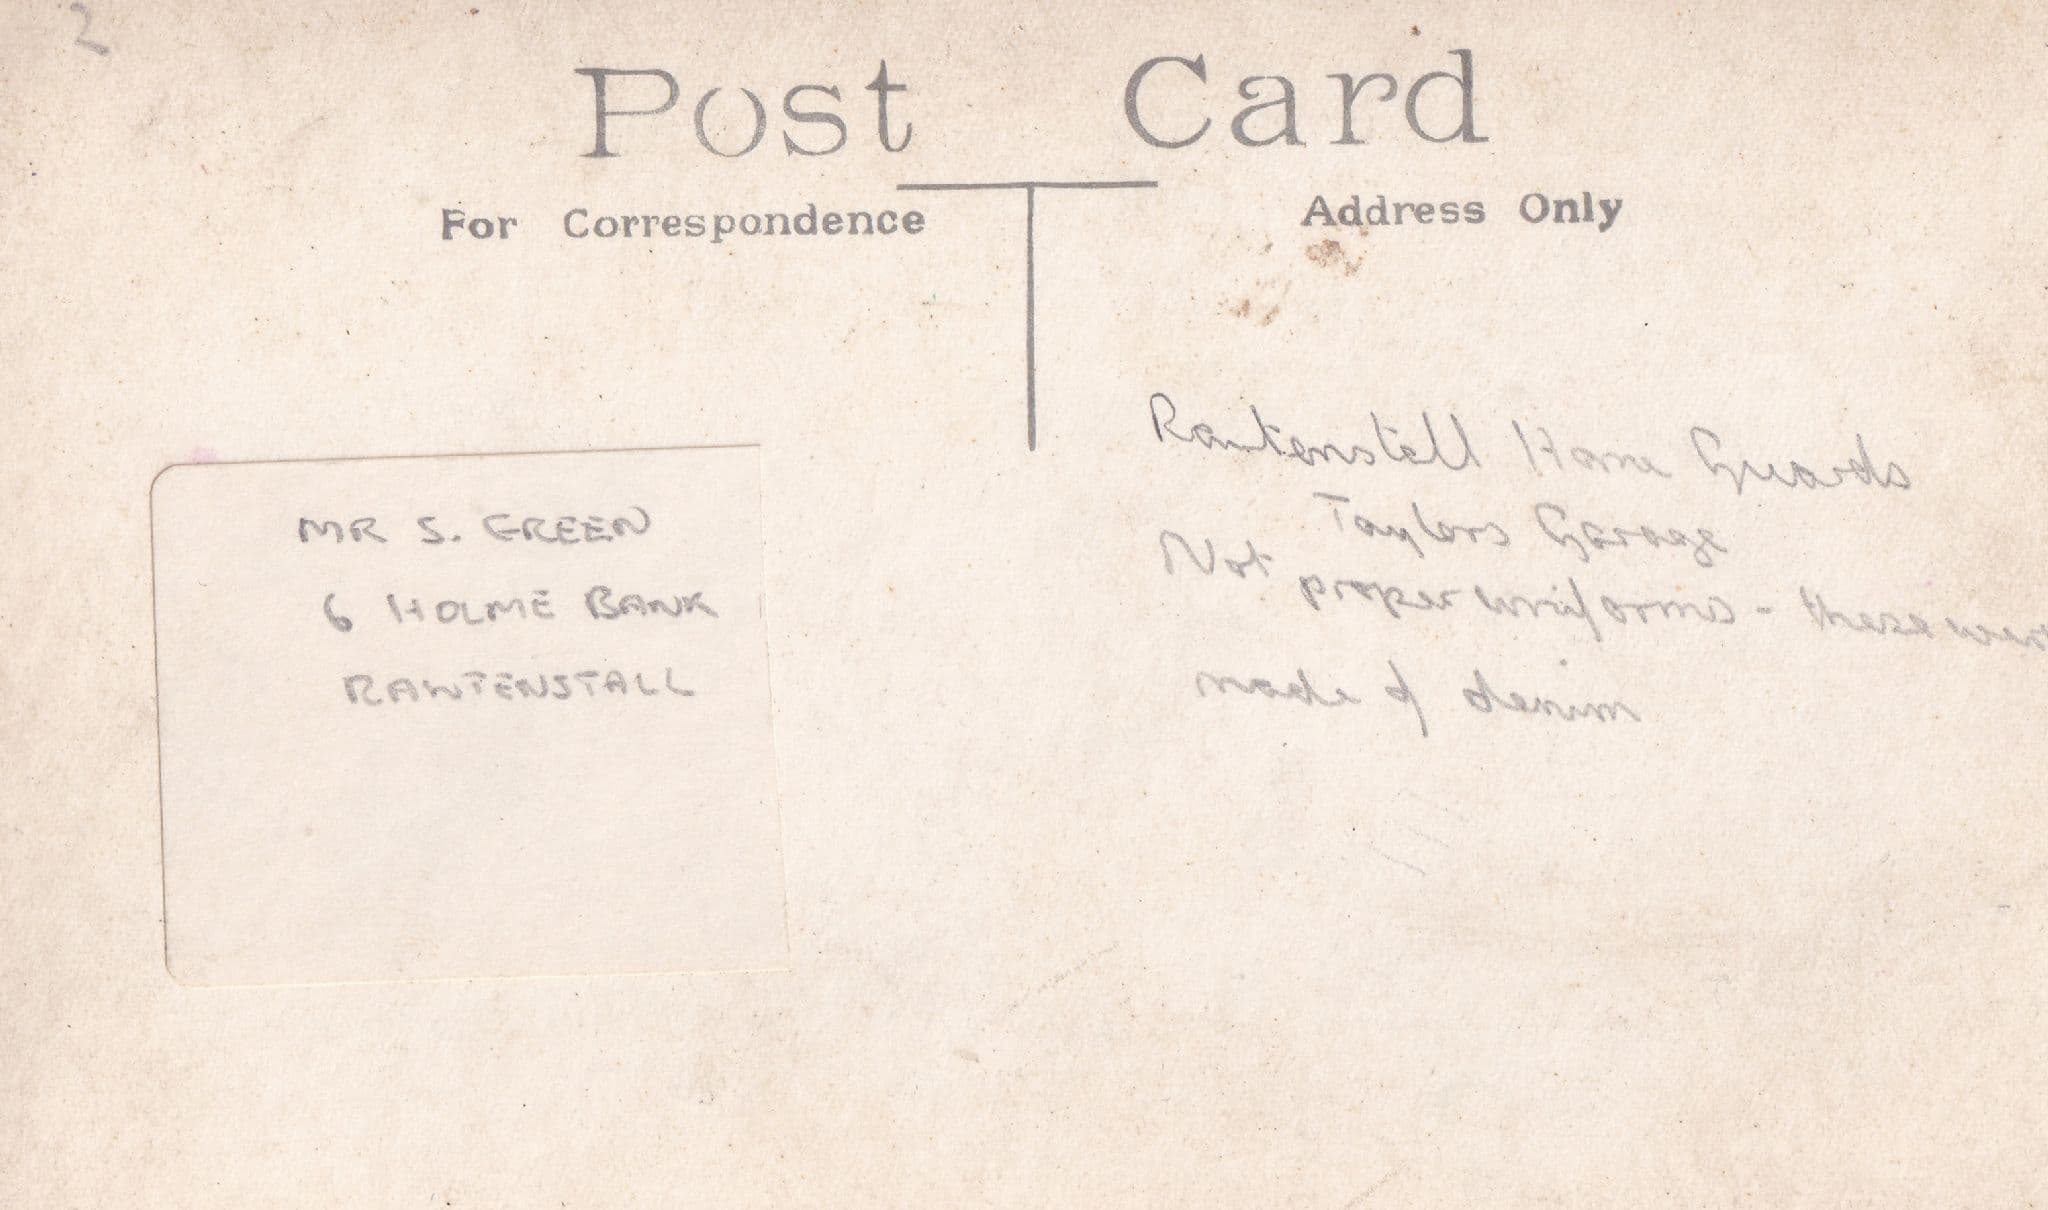 2
Post Card
For Correspondence
Address Only
MR S. GREEN
6 HOLME BANK
RAWTENSTALL
Rawtenstall Home Guards
Taylors Garage
Not proper uniforms - these were
made of denim